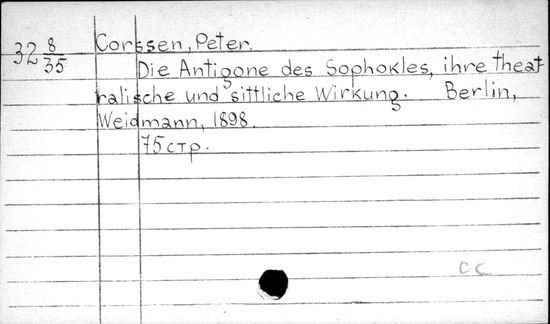 32 8/35
Corssen, Peter.
Die Antigone des Sophokles, ihre theat
ralische und sittliche Wirkung. Berlin,
Weidmann, 1898.
75 стр.